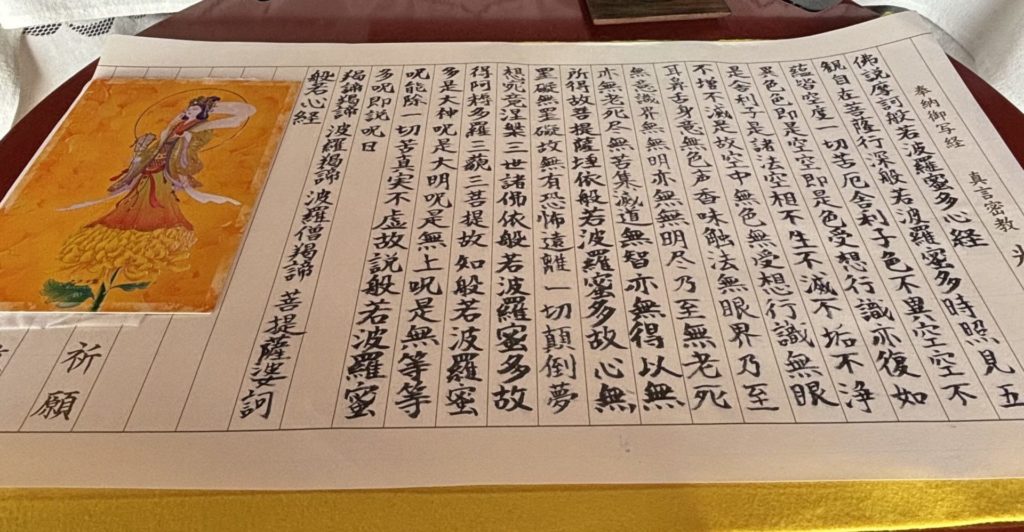 奉納御写経 真言密教
佛説摩訶般若波羅蜜多心経
観自在菩薩行深般若波羅蜜多時照見五
蘊皆空度一切苦厄舎利子色不異空空不
異色色即是空空即是色受想行識亦復如
是舎利子是諸法空相不生不滅不垢不浄
不増不滅是故空中無色無受想行識無眼
耳鼻舌身意無色声香味触法無眼界乃至
無意識界無明亦無無明尽乃至無老死
亦無老死尽無苦集滅道無智亦無得以無
所得故菩提薩埵依般若波羅蜜多故心無
罣礙無罣礙故無有恐怖遠離一切顛倒夢
想究竟涅槃三世諸佛依般若波羅蜜多故
得阿耨多羅三藐三菩提故知般若波羅蜜
多是大神呪是大明呪是無上呪是無等等
呪能除一切苦真実不虚故説般若波羅蜜
多呪即説呪曰
羯諦羯諦 波羅羯諦 波羅僧羯諦 菩提薩婆訶
般若心経
祈願